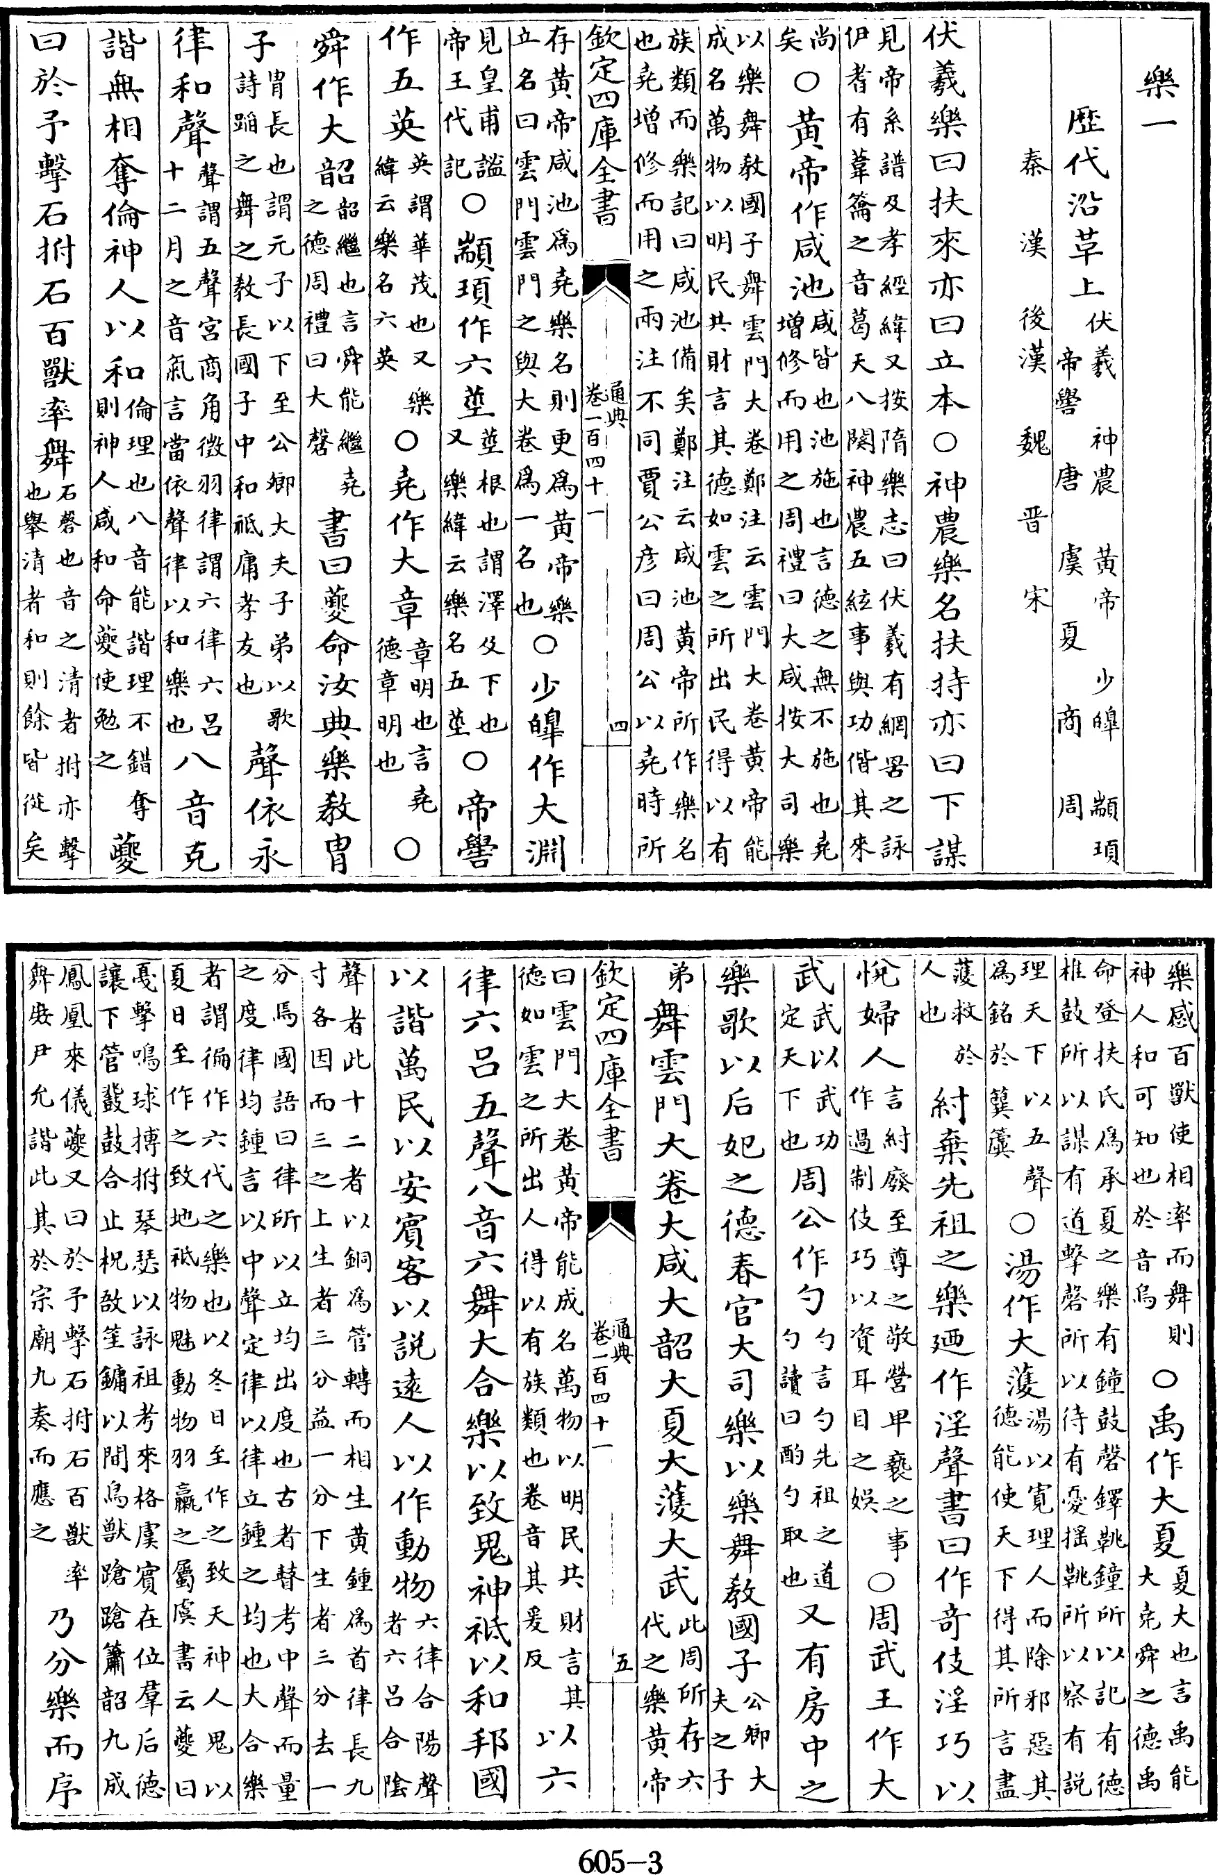 樂一
歷代沿革上 伏羲 神農 黃帝 少皥 顓頊 帝嚳 唐 虞 夏 商 周
秦 漢 後漢 魏 晋 宋
伏羲樂曰扶來亦曰立本○神農樂名扶持亦曰下謀
見帝系譜及孝經緯又按隋樂志曰伏羲有網罟之詠伊耆有葦籥之音葛天八闋神農五絃事與功偕其來
尚矣○黃帝作咸池咸皆也池施也言德之無不施也堯增修而用之周禮曰大咸按大司樂
以樂舞教國子舞雲門大卷鄭注云雲門大卷黃帝能成名萬物以明民共財言其德如雲之所出民得以有
族類而樂記曰咸池備矣鄭注云咸池黃帝所作樂名也堯增修而用之兩注不同賈公彦曰周公以堯時所
欽定四庫全書 通典 卷一百四十一 四
存黃帝咸池為堯樂名則更為黃帝樂立名曰雲門雲門之與大卷為一名也○少皥作大淵
見皇甫謐帝王代記○顓頊作六莖莖根也謂澤及下也又樂緯云樂名五莖○帝嚳
作五英英謂華茂也又樂緯云樂名六英○堯作大章章明也言堯德章明也○
舜作大韶韶繼也言舜能繼堯之德周禮曰大磬書曰夔命汝典樂教胄
子胄長也謂元子以下至公卿大夫子弟以歌詩蹈之舞之教長國子中和祗庸孝友也聲依永
律和聲聲謂五聲宮商角徵羽律謂六律六呂十二月之音氣言當依聲律以和樂也八音克
諧無相奪倫神人以和倫理也八音能諧理不錯奪則神人咸和命夔使勉之夔
曰於予擊石拊石百獸率舞石磬也音之清者拊亦擊也舉清者和則餘皆從矣
樂感百獸使相率而舞則神人和可知也於音烏○禹作大夏夏大也言禹能大克舜之德禹
命登扶氏為承夏之樂有鐘鼓磬鐸鞉鐘所以記有德椎鼓所以謀有道擊磬所以待有憂搖鞉所以察有説
理天下以五聲為銘於簨簴○湯作大濩湯以寬理人而除邪惡其德能使天下得其所言盡
濩救於人也紂棄先祖之樂廼作淫聲書曰作奇伎淫巧以
悅婦人言紂廢至尊之敬營卑褻之事作過制伎巧以資耳目之娛○周武王作大
武武以武功定天下也周公作勺勺言勺先祖之道勺讀曰酌勺取也又有房中之
樂歌以后妃之德春官大司樂以樂舞教國子公卿大夫之子
弟舞雲門大卷大咸大韶大夏大濩大武此周所存六代之樂黃帝
欽定四庫全書 通典 卷一百四十一 五
曰雲門大卷黃帝能成名萬物以明民共財言其德如雲之所出人得以有族類也卷音其爰反以六
律六呂五聲八音六舞大合樂以致鬼神祗以和邦國
以諧萬民以安賓客以説遠人以作動物六律合陽聲者六呂合陰
聲者此十二者以銅為管轉而相生黃鍾為首律長九寸各因而三之上生者三分益一分下生者三分去一
分焉國語曰律所以立均出度也古者瞽考中聲而量之度律均鍾言以中聲定律以律立鍾之均也大合樂
者謂徧作六代之樂也以冬日至作之致天神人鬼以夏日至作之致地祗物魅動物羽羸之屬虞書云夔曰
戞擊鳴球搏拊琴瑟以詠祖考來格虞賓在位羣后德讓下管鼗鼓合止柷敔笙鏞以間鳥獸蹌蹌簫韶九成
鳳凰來儀夔又曰於予擊石拊石百獸率舞庶尹允諧此其於宗廟九奏而應之乃分樂而序
605-3